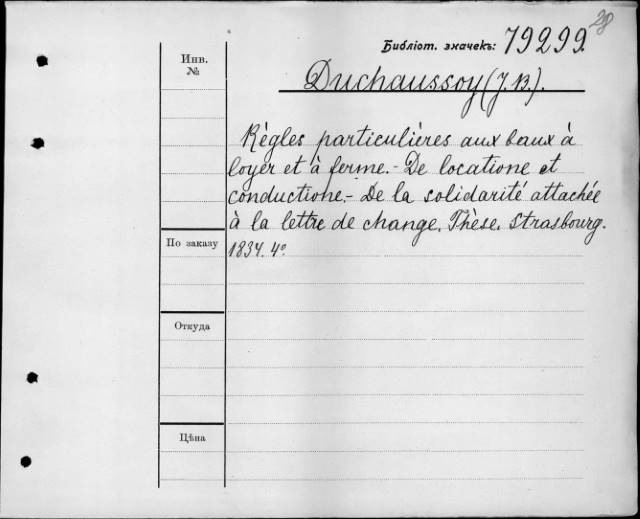 28
Библіот. значекъ: 79299.
Инв.
№
Duchaussoy (J. B.).
Règles particulières aux baux à
loyer et à ferme. - De locatione et
conductione. - De la solidarité attachée
à la lettre de change. Thèse. Strasbourg.
По заказу
1834. 4º
Откуда
Цѣна